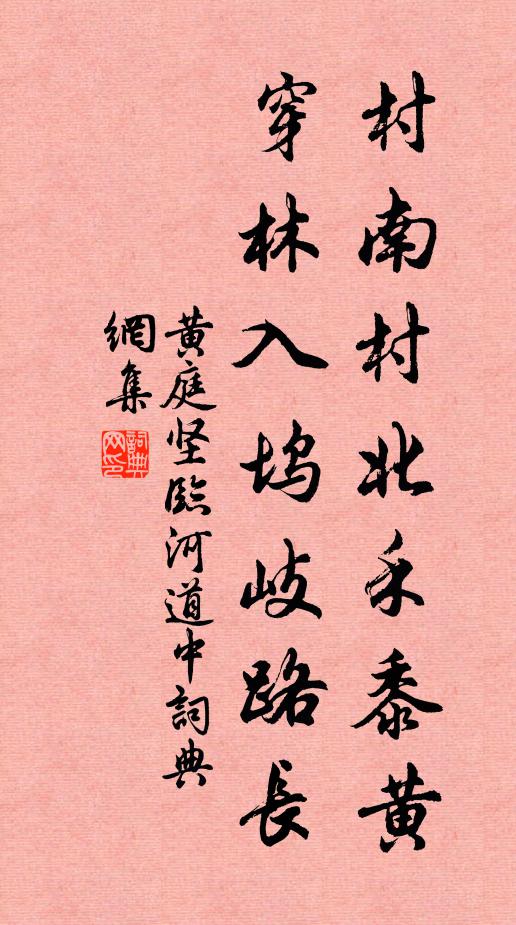 村南村北禾黍黄
穿林入坞岐路長
黄庭坚臨河道中詞典
網集
詞典网印